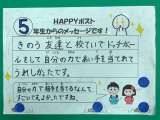 HAPPYポスト
5年生からのメッセージです!
きのう友達と校ていでドッチボー
ルをして自分の力であい手を当てれて
うれしかたです。
自分の力で相手を当てるなんて
すごいですね。